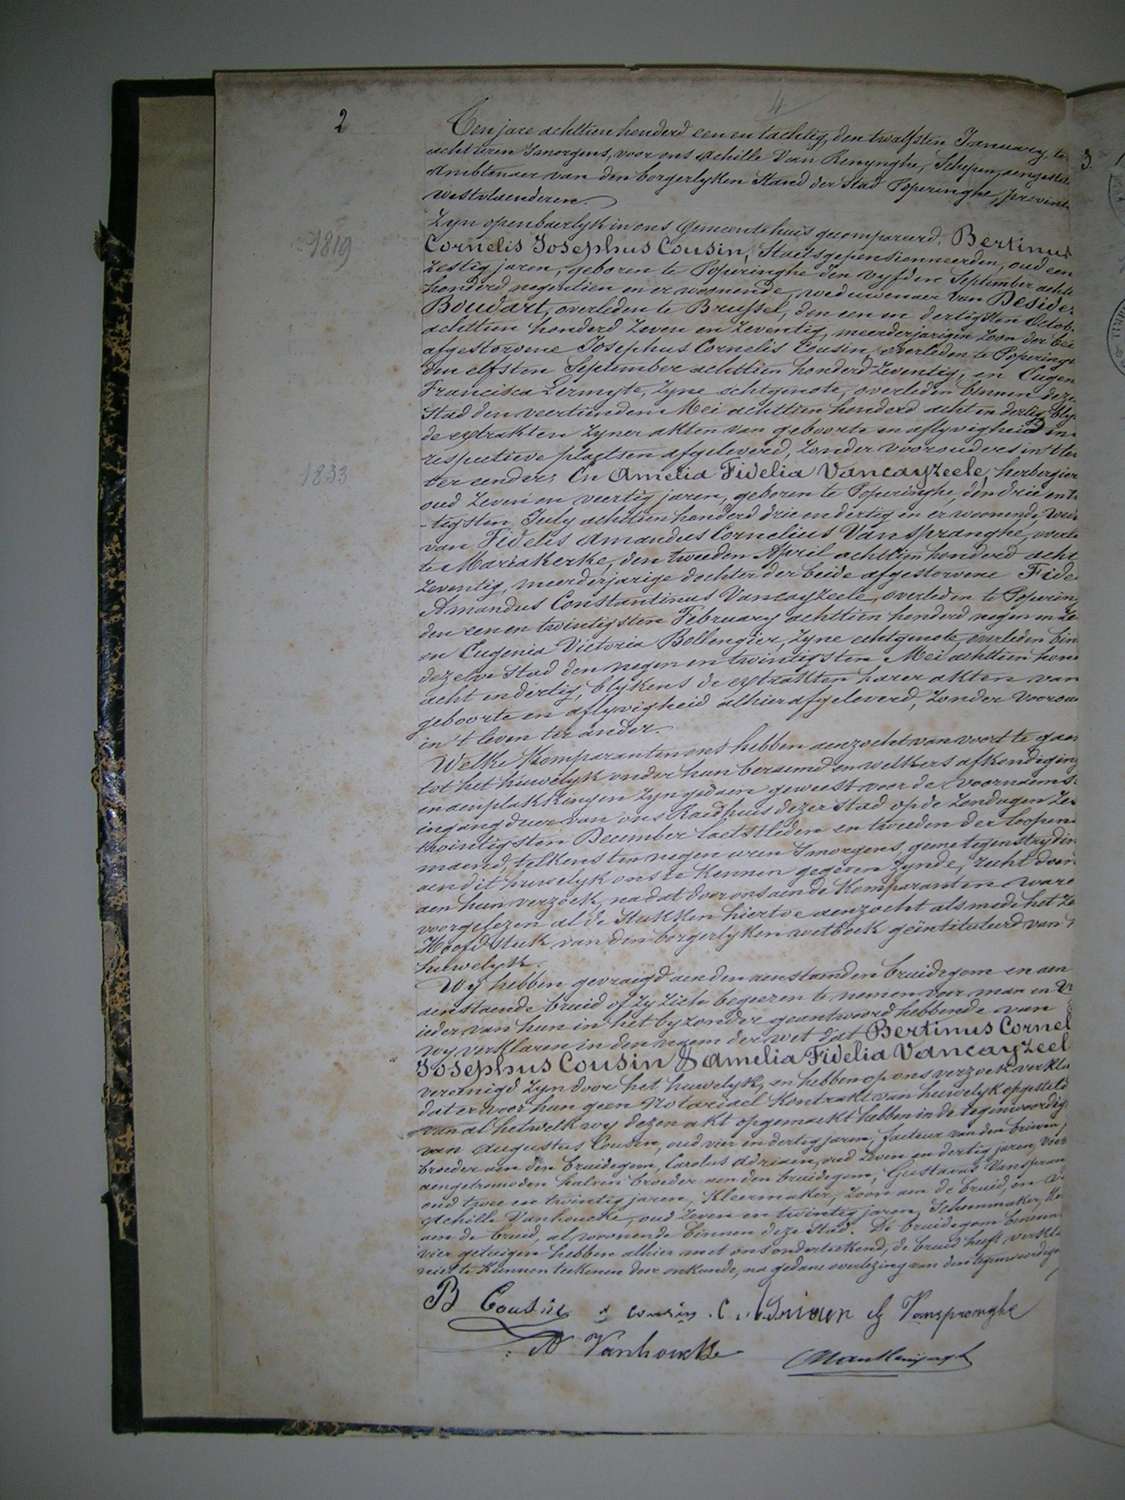 4
2
Ten jare achttien honderd een en tachtig, den twalfsten January, te
acht uren smorgens, voor ons Achille Van Renynghe, Schepen, aengestel
Amblenaer van den borgerlyken Stand der Stad Poperinghe, provint
westvlaenderen.
3.
Zyn openbaerlyk in ons Gemeentehuis gecompareerd, Bertinus
1819
Cornelis Josephus Cousin, Staetsgepensionneerden, oud een
zestig jaren, geboren te Poperinghe den vyfden September achtt
honderd negentien en er woonende, weduwenaer van Desider
Boudart, overleden te Brussel, den een en dertigsten Octob
achttien honderd zeven en zeventig, meerderjarigen zoon der bei
afgestorvene Josephus Cornelis Cousin, overleden te Poperinge
den elfsten September achttien honderd zeventig, en Eugen
Francisca Lermyte, zyne echtgenote, overleden binnen deze
Stad den veertienden Mei achttien honderd acht en dertig, bly
de extrakten zyner akten van geboorte en aflyvigheid in
respectieve plaetsen afgeleverd, zonder voorouders in 't lev
ter eender; En Amelia Fidelia Vancayzeele, herbergier
1833
oud zeven en veertig jaren, geboren te Poperinghe, den drie en t
-tigsten July achttien honderd drie en dertig en er woonende, wed
van Fidelis Amandus Cornelius Vanspranghe, overle
te Mariakerke, den tweeden April achttien honderd acht
zeventig, meerderjarige dochter der beide afgestorvene Fide
Amandus Constantinus Vancayzeele, overleden te Poperin
den een en twintigsten February achttien honderd negen en ze
en Eugenia Victoria Bollengier, zyne echtgenote, overleden bin
dezelve Stad den negen en twintigsten Mei achttien hon
acht en dertig, blykens de extrakten harer akten van
geboorte en aflyvigheid alhier afgeleverd, zonder vooroud
in 't leven ter ander.
Welke Komparanten ons hebben aenzocht van voort te gaen
tot het huwelyk onder hun beraemd en welkers afkondiging
en aenplakkingen zyn gedaen geweest voor de voornaemst
ingangdeur van ons Raedhuis dezer stad op de zondagen zes
twintigsten December laetstleden en tweeden der loopen
maend, telkens ten negen uren smorgens, geene tegenstrydin
aen dit huwelyk ons te kennen gegeven zynde, recht doen
aen hun verzoek, na dat door ons aen de Komparanten ware
voorgelezen al de Stukken hiertoe aenzocht als mede het ze
Hoofdstuk van den borgerlyken wetboek geïntituleerd van 't
huwelyk.
Wy hebben gevraegd aen den aenstaenden bruidegom en aen
aenstaende bruid of zy zich begeeren te nemen voor man en vr
ieder van hun in het byzonder geantwoord hebbende van
wy verklaren in den naem der wet dat Bertinus Cornel
Josephus Cousin & Amelia Fidelia Vancayzeel
vereenigd zyn door het huwelyk, en hebben op ons verzoek verkla
dat er voor hun geen Notariael Kontrakt van huwelyk opgesteld
van al hetwelk wy dezen akt opgemaekt hebben in de tegenwoordig
van Augustus Cousin, oud vier en dertig jaren, facteur van den brieven,
broeder aen den bruidegom, Carolus Adriaen, oud zeven en dertig jaren,
aengetrouwden halven broeder aen den bruidegom, Gustavus Vanspran
oud twee en twintig jaren, Kleermaker, zoon aen de bruid, en
Achille Vanhoucke, oud zeven en twintig jaren, Schoenmaker,
aen de bruid, al woonende binnen deze Stad. De bruidegom benevens
vier getuigen hebben alhier met ons onderteekend, de bruid heeft verkla
niet te kunnen teekenen door onkunde, na gedane overlezing van den tegenwoordige
B Cousin A cousin C. Adriaen G Vanspranghe
A Vanhoucke AVanRenynghe